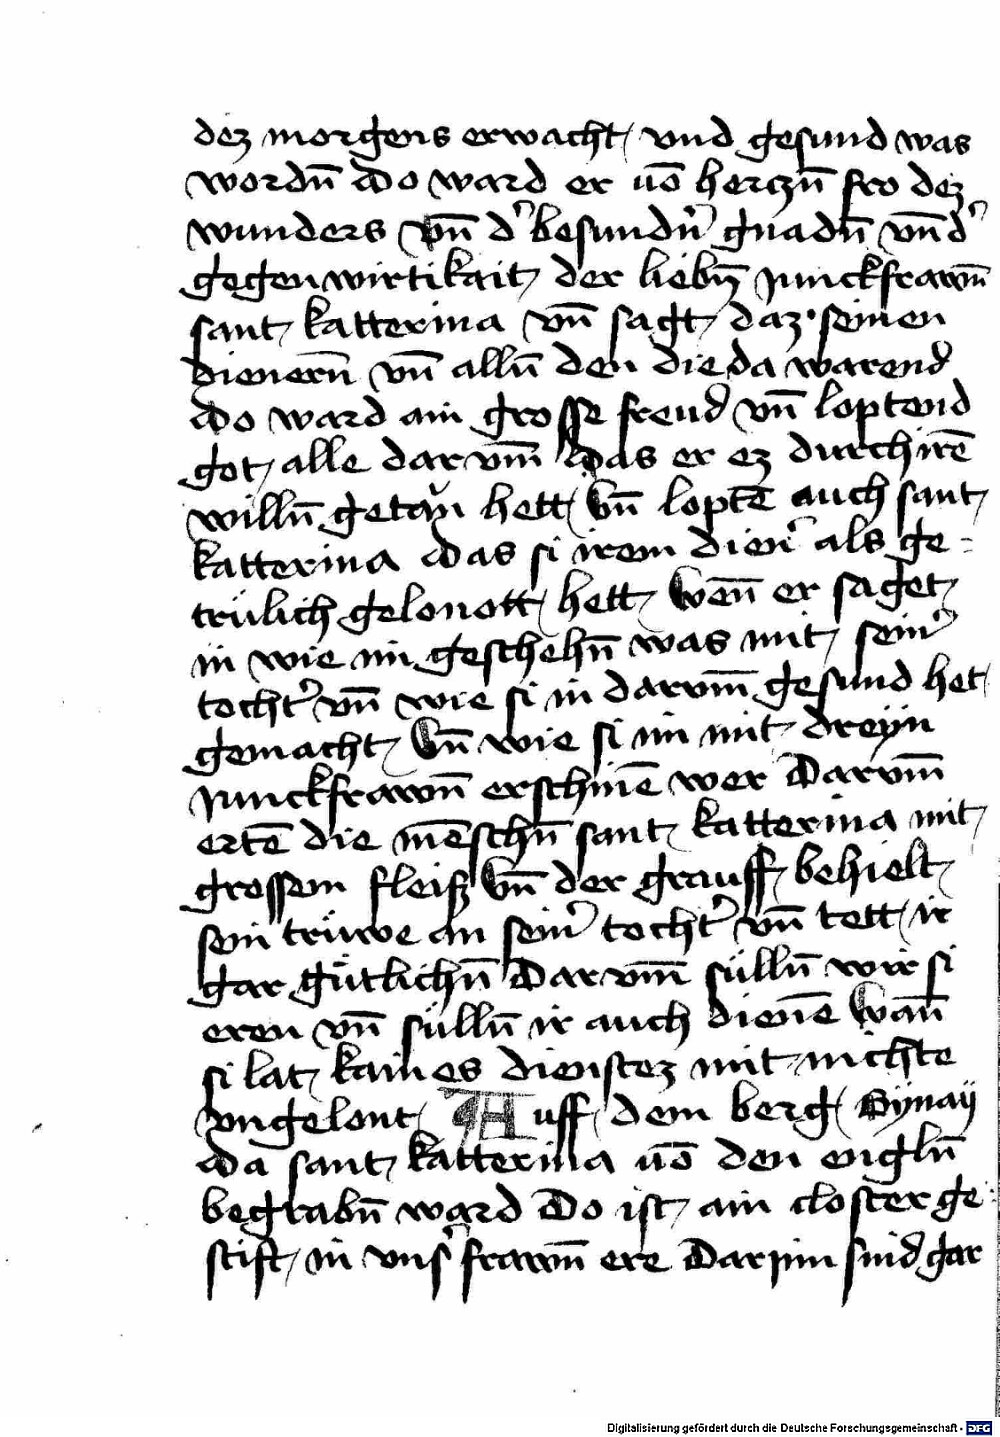 dez morgens erwacht vnd gesund was
wordn̄ Do ward er vō herczn̄ fro dez
wunders vn̄ dʼ besundn̄ʼ gnadn̄ vn̄ dʼ
gegenwirtikait der liebn̄ junckfrawn̄
sant katterina vn̄ sagt daz seinen
dienern̄ vn̄ alln̄ den die da warend
Do ward ain grosse freud vn̄ loptend
got alle darvm̄ das er ez durch irē
willn̄ getan hett Vn̄ loptē auch sant
katterina das si irem dienʼ als ge=
trülich gelonott hett Wen̄ er saget
in wie im geschehn̄ was mit seinʼ
tochtʼ vn̄ wie si in darvm̄ gesund het
gemacht Vn̄ wie si im mit dreyn
junckfrawn̄ erschinē wer Darvm̄
ertē die mēschn̄ sant katterina mit
grossem fleiß Vn̄ der grauff behielt
sein trüwe an seinʼ tochtʼ vn̄ tett ir
gar gütlichn̄ Darvm̄ sülln̄ wir si
eren vn̄ sülln̄ ir auch dienē Wan̄
si lat kaines dienstez mit nichte
vngelont Auff dem berg Synaÿ
da sant katterina vō den engln̄
begrabn̄ ward Do ist ain closter ge
stift in vnsʼ frawn̄ ere Darjnn sind gar
Digitalisierung gefördert durch die Deutsche Forschungsgemeinschaft - DFG